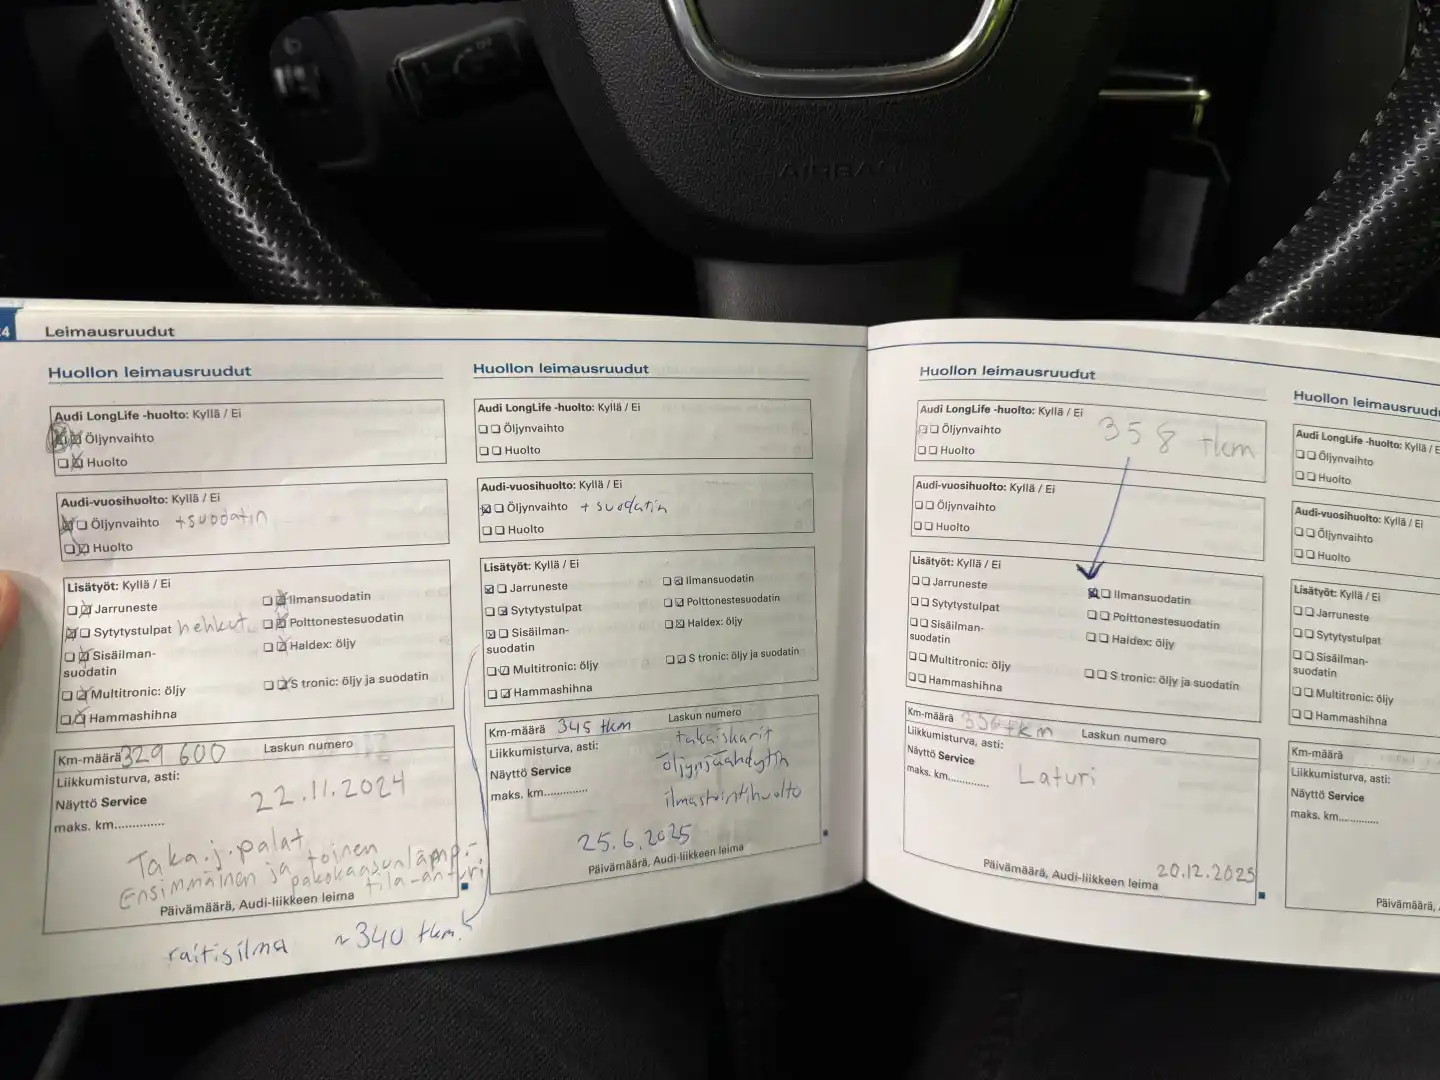 AIRBAG
24
Leimausruudut
Huollon leimausruudut
Audi LongLife -huolto: Kyllä / Ei
Öljynvaihto
Huolto
Audi-vuosihuolto: Kyllä / Ei
Öljynvaihto +suodatin
Huolto
Lisätyöt: Kyllä / Ei
Jarruneste
Ilmansuodatin
Sytytystulpat hehkut
Polttonestesuodatin
Sisäilman-
suodatin
Haldex: öljy
Multitronic: öljy
S tronic: öljy ja suodatin
Hammashihna
Km-määrä 329 600
Laskun numero
Liikkumisturva, asti:
Näyttö Service
maks. km..............
22.11.2024
Taka.j.palat
Ensimmäinen ja toinen
pakokaasunlämpö-
tila-anturi
Päivämäärä, Audi-liikkeen leima
raitisilma ~340 tkm.
Huollon leimausruudut
Audi LongLife -huolto: Kyllä / Ei
Öljynvaihto
Huolto
Audi-vuosihuolto: Kyllä / Ei
Öljynvaihto + suodatin
Huolto
Lisätyöt: Kyllä / Ei
Jarruneste
Ilmansuodatin
Sytytystulpat
Polttonestesuodatin
Sisäilman-
suodatin
Haldex: öljy
Multitronic: öljy
S tronic: öljy ja suodatin
Hammashihna
Km-määrä 345 tkm
Laskun numero
Liikkumisturva, asti:
takaiskarit
Näyttö Service
öljynjäähdytin
maks. km..............
ilmastointihuolto
25.6.2025
Päivämäärä, Audi-liikkeen leima
Huollon leimausruudut
Audi LongLife -huolto: Kyllä / Ei
358 tkm
Öljynvaihto
Huolto
Audi-vuosihuolto: Kyllä / Ei
Öljynvaihto
Huolto
Lisätyöt: Kyllä / Ei
Jarruneste
Ilmansuodatin
Sytytystulpat
Polttonestesuodatin
Sisäilman-
suodatin
Haldex: öljy
Multitronic: öljy
S tronic: öljy ja suodatin
Hammashihna
Km-määrä 356 tkm
Laskun numero
Liikkumisturva, asti:
Näyttö Service
maks. km..............
Laturi
20.12.2025
Päivämäärä, Audi-liikkeen leima
Huollon leimausruudu
Audi LongLife -huolto: Kyllä / E
Öljynvaihto
Huolto
Audi-vuosihuolto: Kyllä / Ei
Öljynvaihto
Huolto
Lisätyöt: Kyllä / Ei
Jarruneste
Sytytystulpat
Sisäilman-
suodatin
Multitronic: öljy
Hammashihna
Km-määrä
Liikkumisturva, asti:
Näyttö Service
maks. km..............
Päivämäärä,